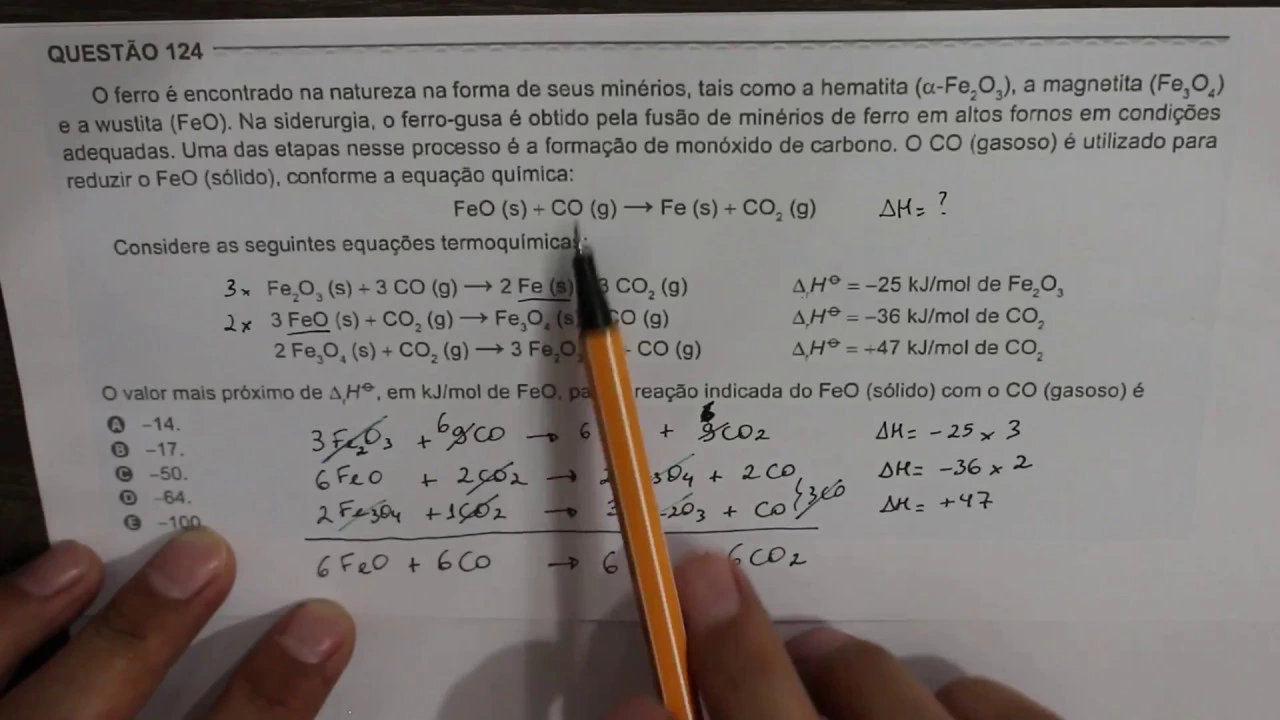 QUESTÃO 124
O ferro é encontrado na natureza na forma de seus minérios, tais como a hematita (α-Fe₂O₃), a magnetita (Fe₃O₄)
e a wustita (FeO). Na siderurgia, o ferro-gusa é obtido pela fusão de minérios de ferro em altos fornos em condições
adequadas. Uma das etapas nesse processo é a formação de monóxido de carbono. O CO (gasoso) é utilizado para
reduzir o FeO (sólido), conforme a equação química:
FeO (s) + CO (g) → Fe (s) + CO₂ (g) ΔH = ?
Considere as seguintes equações termoquímicas:
3x Fe₂O₃ (s) + 3 CO (g) → 2 Fe (s) 3 CO₂ (g) ΔᵣH⊖ = −25 kJ/mol de Fe₂O₃
2x 3 FeO (s) + CO₂ (g) → Fe₃O₄ (s) CO (g) ΔᵣH⊖ = −36 kJ/mol de CO₂
2 Fe₃O₄ (s) + CO₂ (g) → 3 Fe₂O₃ + CO (g) ΔᵣH⊖ = +47 kJ/mol de CO₂
O valor mais próximo de ΔᵣH⊖, em kJ/mol de FeO, reação indicada do FeO (sólido) com o CO (gasoso) é
A −14.
B −17.
C −50.
D −64.
E −100.
3Fe₂O₃ + 6 9CO → 6 + 6 9CO₂ ΔH = −25 x 3
6FeO + 2CO₂ → 2 3O₄ + 2CO ΔH = −36 x 2
2Fe₃O₄ + 1CO₂ → 3 2O₃ + CO } 3CO ΔH = +47
6FeO + 6CO → 6 6CO₂